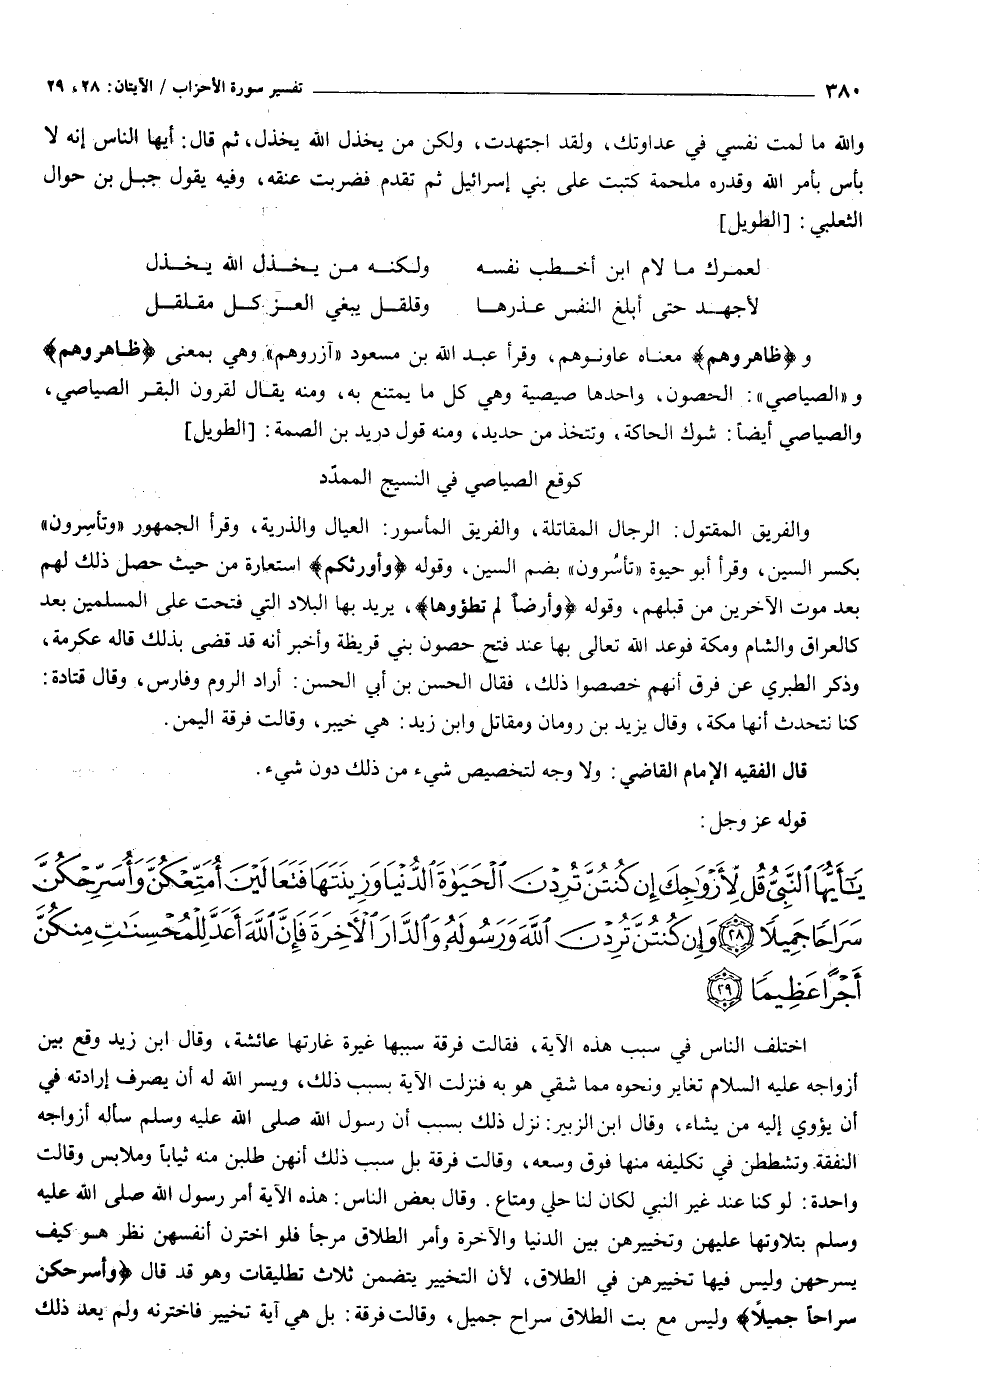 ٣٨٠ تفسير سورة الأحزاب / الآيتان: ٢٨، ٢٩
والله ما لمت نفسي في عداوتك، ولقد اجتهدت، ولكن من يخذل الله يخذل، ثم قال: أيها الناس إنه لا
بأس بأمر الله وقدره ملحمة كتبت على بني إسرائيل ثم تقدم فضربت عنقه، وفيه يقول جبل بن حوال
الثعلبي: [الطويل]
لعمرك ما لام ابن أخطب نفسه ولكنه من يخذل الله يخذل
لأجهد حتى أبلغ النفس عذرها وقلقل يبغي العز كل مقلقل
و ﴿ظاهروهم﴾ معناه عاونوهم، وقرأ عبد الله بن مسعود «آزروهم» وهي بمعنى ﴿ظاهروهم﴾
و «الصياصي»: الحصون، واحدها صيصية وهي كل ما يمتنع به، ومنه يقال لقرون البقر الصياصي،
والصياصي أيضاً: شوك الحاكة، وتتخذ من حديد، ومنه قول دريد بن الصمة: [الطويل]
كوقع الصياصي في النسيج الممدّد
والفريق المقتول: الرجال المقاتلة، والفريق المأسور: العيال والذرية، وقرأ الجمهور «وتأسِرون»
بكسر السين، وقرأ أبو حيوة «تأسُرون» بضم السين، وقوله ﴿وأورثكم﴾ استعارة من حيث حصل ذلك لهم
بعد موت الآخرين من قبلهم، وقوله ﴿وأرضاً لم تطؤوها﴾، يريد بها البلاد التي فتحت على المسلمين بعد
كالعراق والشام ومكة فوعد الله تعالى بها عند فتح حصون بني قريظة وأخبر أنه قد قضى بذلك قاله عكرمة،
وذكر الطبري عن فرق أنهم خصصوا ذلك، فقال الحسن بن أبي الحسن: أراد الروم وفارس، وقال قتادة:
كنا نتحدث أنها مكة، وقال يزيد بن رومان ومقاتل وابن زيد: هي خيبر، وقالت فرقة اليمن.
قال الفقيه الإمام القاضي: ولا وجه لتخصيص شيء من ذلك دون شيء.
قوله عز وجل:
يَٰٓأَيُّهَا ٱلنَّبِىُّ قُل لِّأَزْوَٰجِكَ إِن كُنتُنَّ تُرِدْنَ ٱلْحَيَوٰةَ ٱلدُّنْيَا وَزِينَتَهَا فَتَعَالَيْنَ أُمَتِّعْكُنَّ وَأُسَرِّحْكُنَّ
سَرَاحًا جَمِيلًا ﴿٢٨﴾ وَإِن كُنتُنَّ تُرِدْنَ ٱللَّهَ وَرَسُولَهُۥ وَٱلدَّارَ ٱلْأَخِرَةَ فَإِنَّ ٱللَّهَ أَعَدَّ لِلْمُحْسِنَٰتِ مِنكُنَّ
أَجْرًا عَظِيمًا ﴿٢٩﴾
اختلف الناس في سبب هذه الآية، فقالت فرقة سببها غيرة غارتها عائشة، وقال ابن زيد وقع بين
أزواجه عليه السلام تغاير ونحوه مما شقي هو به فنزلت الآية بسبب ذلك، ويسر الله له أن يصرف إرادته في
أن يؤوي إليه من يشاء، وقال ابن الزبير: نزل ذلك بسبب أن رسول الله صلى الله عليه وسلم سأله أزواجه
النفقة وتشططن في تكليفه منها فوق وسعه، وقالت فرقة بل سبب ذلك أنهن طلبن منه ثياباً وملابس وقالت
واحدة: لو كنا عند غير النبي لكان لنا حلي ومتاع. وقال بعض الناس: هذه الآية أمر رسول الله صلى الله عليه
وسلم بتلاوتها عليهن وتخييرهن بين الدنيا والآخرة وأمر الطلاق مرجأ فلو اخترن أنفسهن نظر هو كيف
يسرحهن وليس فيها تخييرهن في الطلاق، لأن التخيير يتضمن ثلاث تطليقات وهو قد قال ﴿وأسرحكن
سراحاً جميلاً﴾ وليس مع بت الطلاق سراح جميل، وقالت فرقة: بل هي آية تخيير فاخترنه ولم يعد ذلك